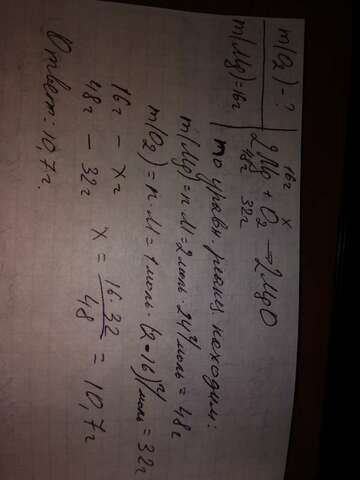 m(O₂) - ?
m(Mg) = 16г
16г x
2Mg + O₂ → 2MgO
48г 32г
по уравн. реакц. находим:
m(Mg) = n · M = 2моль · 24 г/моль = 48г
m(O₂) = n · M = 1моль · (2·16) г/моль = 32г
16г – xг
48г – 32г x = 16·32 / 48 = 10,7г
Ответ: 10,7г.